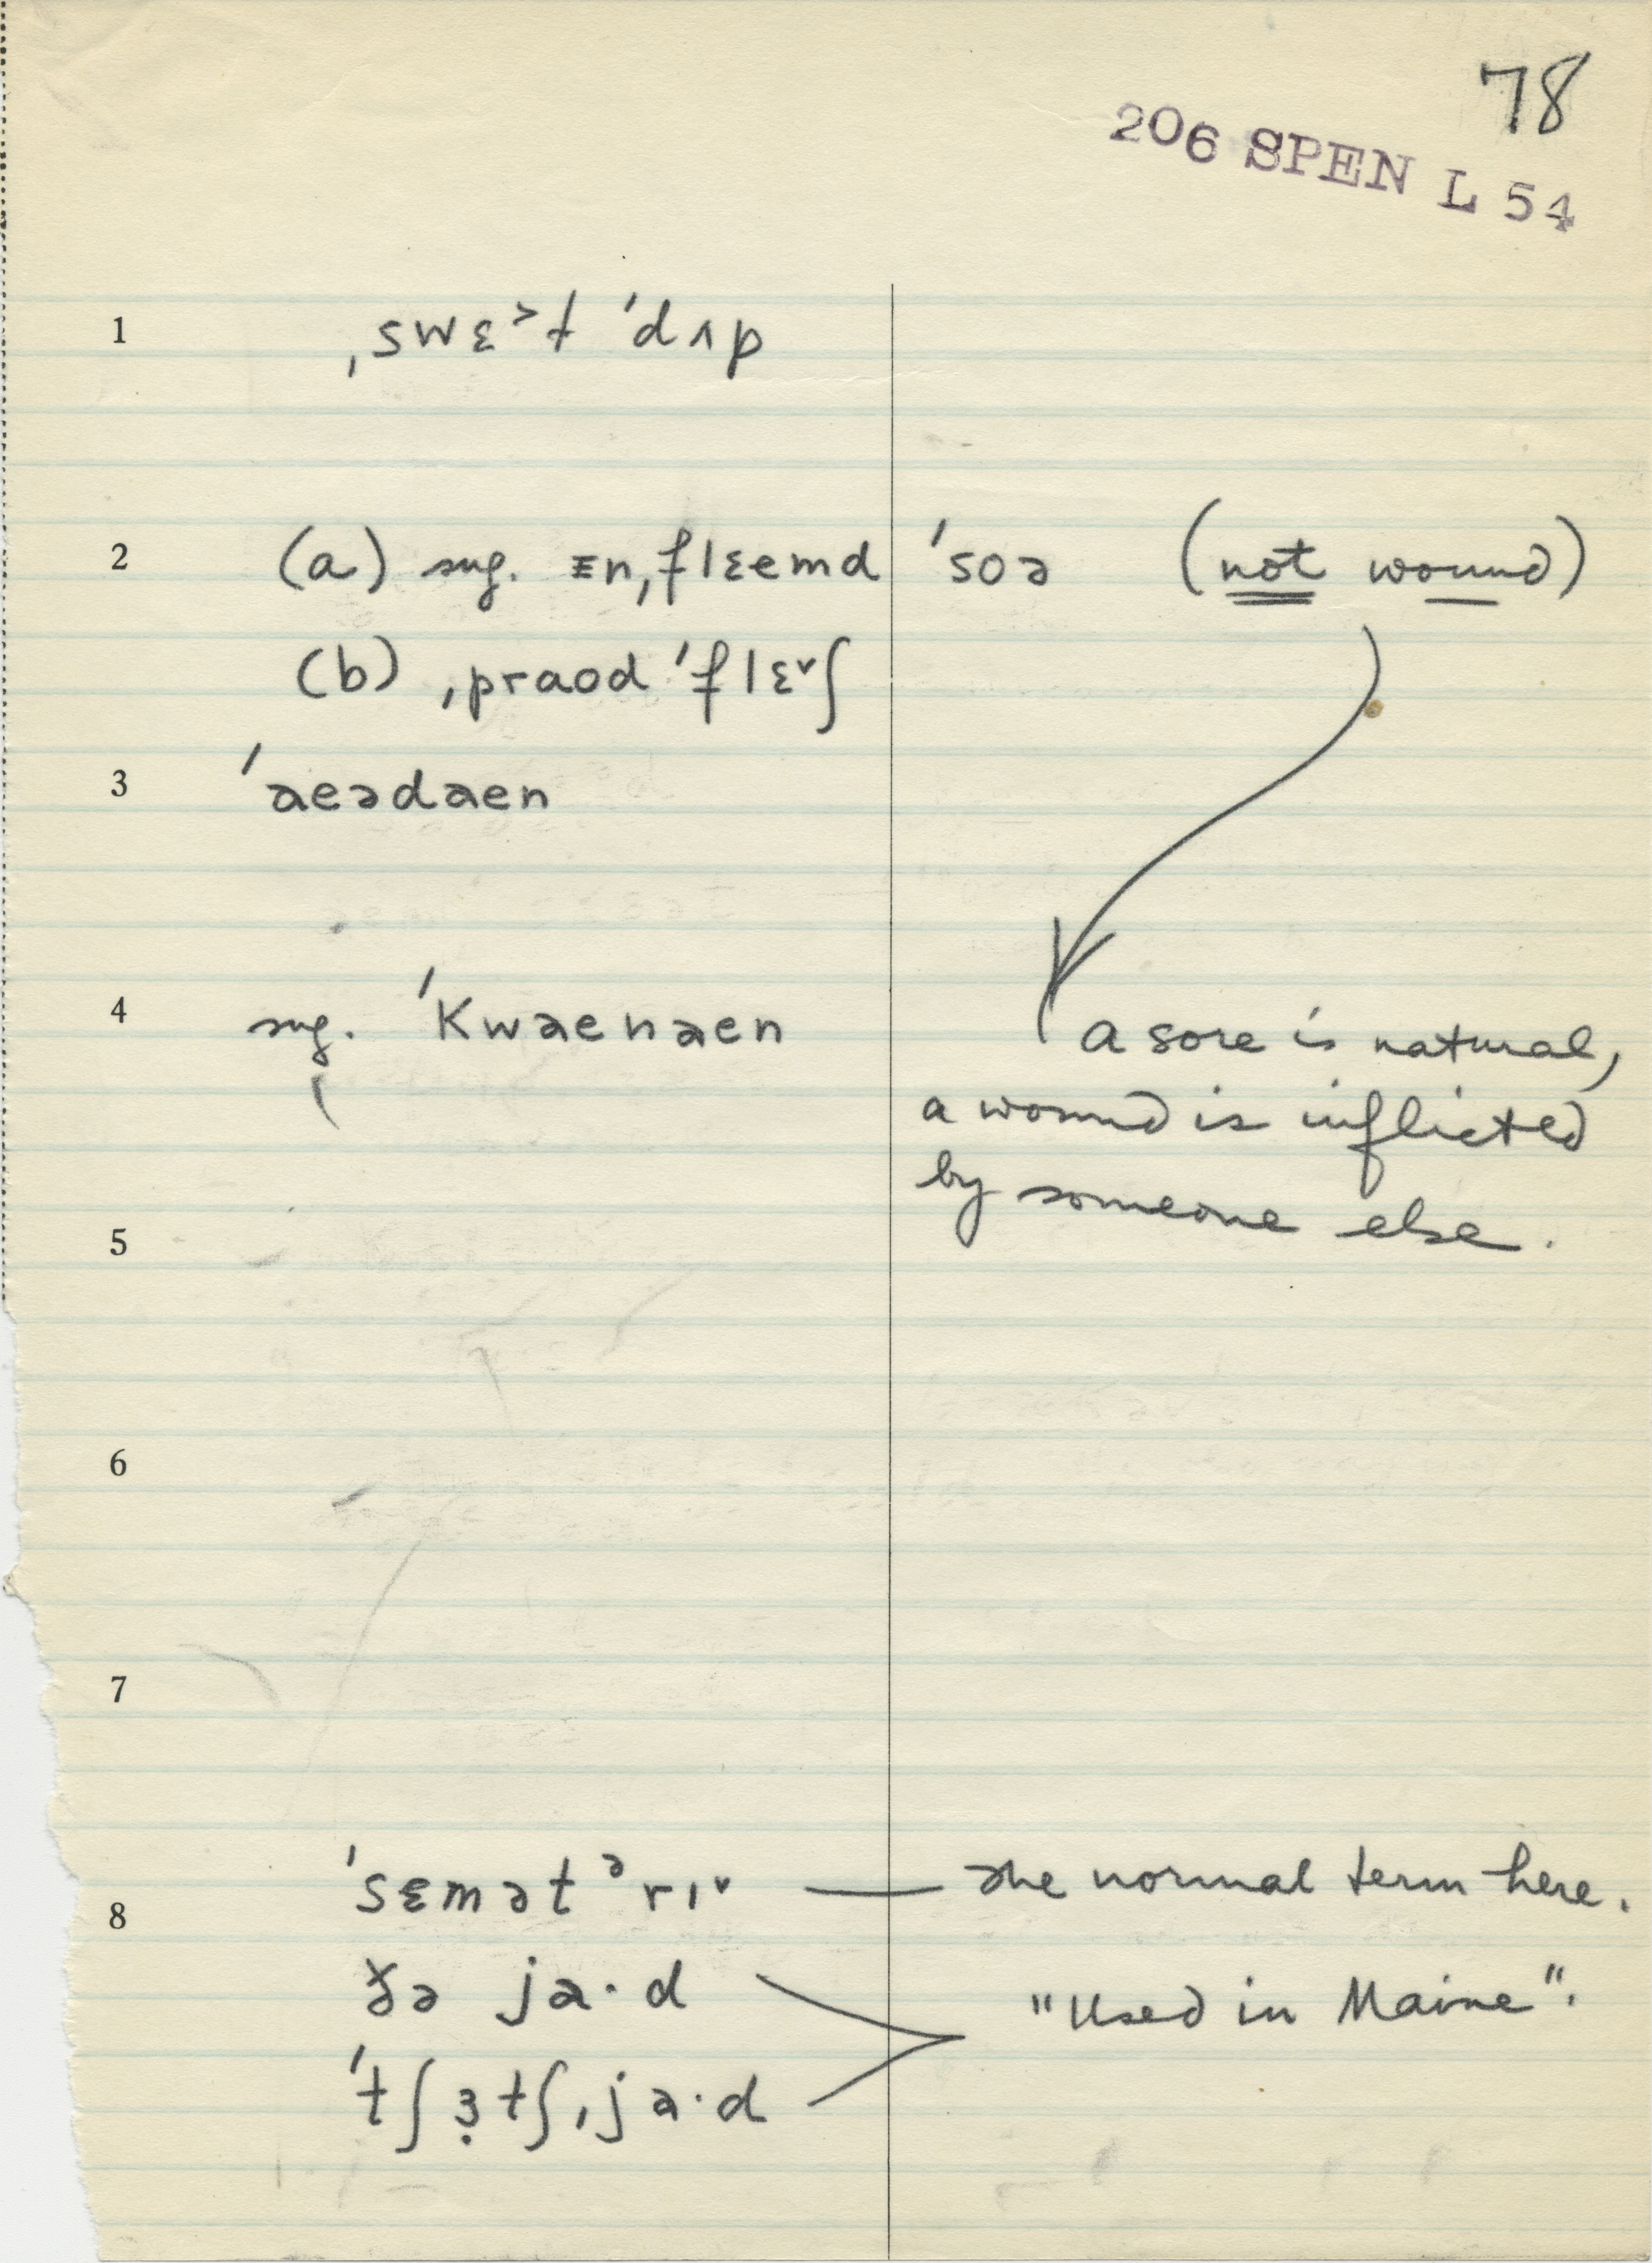 78
206 SPEN L 54
1 ˌswɛ˃t ˈdʌp
2 (a) sug. ɪnˌflɛemd ˈsoə (not wound)
(b) ˌpraod ˈflɛ˅ʃ
3 ˈaeədaen
4 sug. ˈKwaenaen
a sore is natural,
a wound is inflicted
by someone else.
5
6
7
ˈsɛmətᵊrɪ˅ — the normal term here.
8
ðə ja·d
"Used in Maine".
ˈtʃɜ̣tʃˌja·d